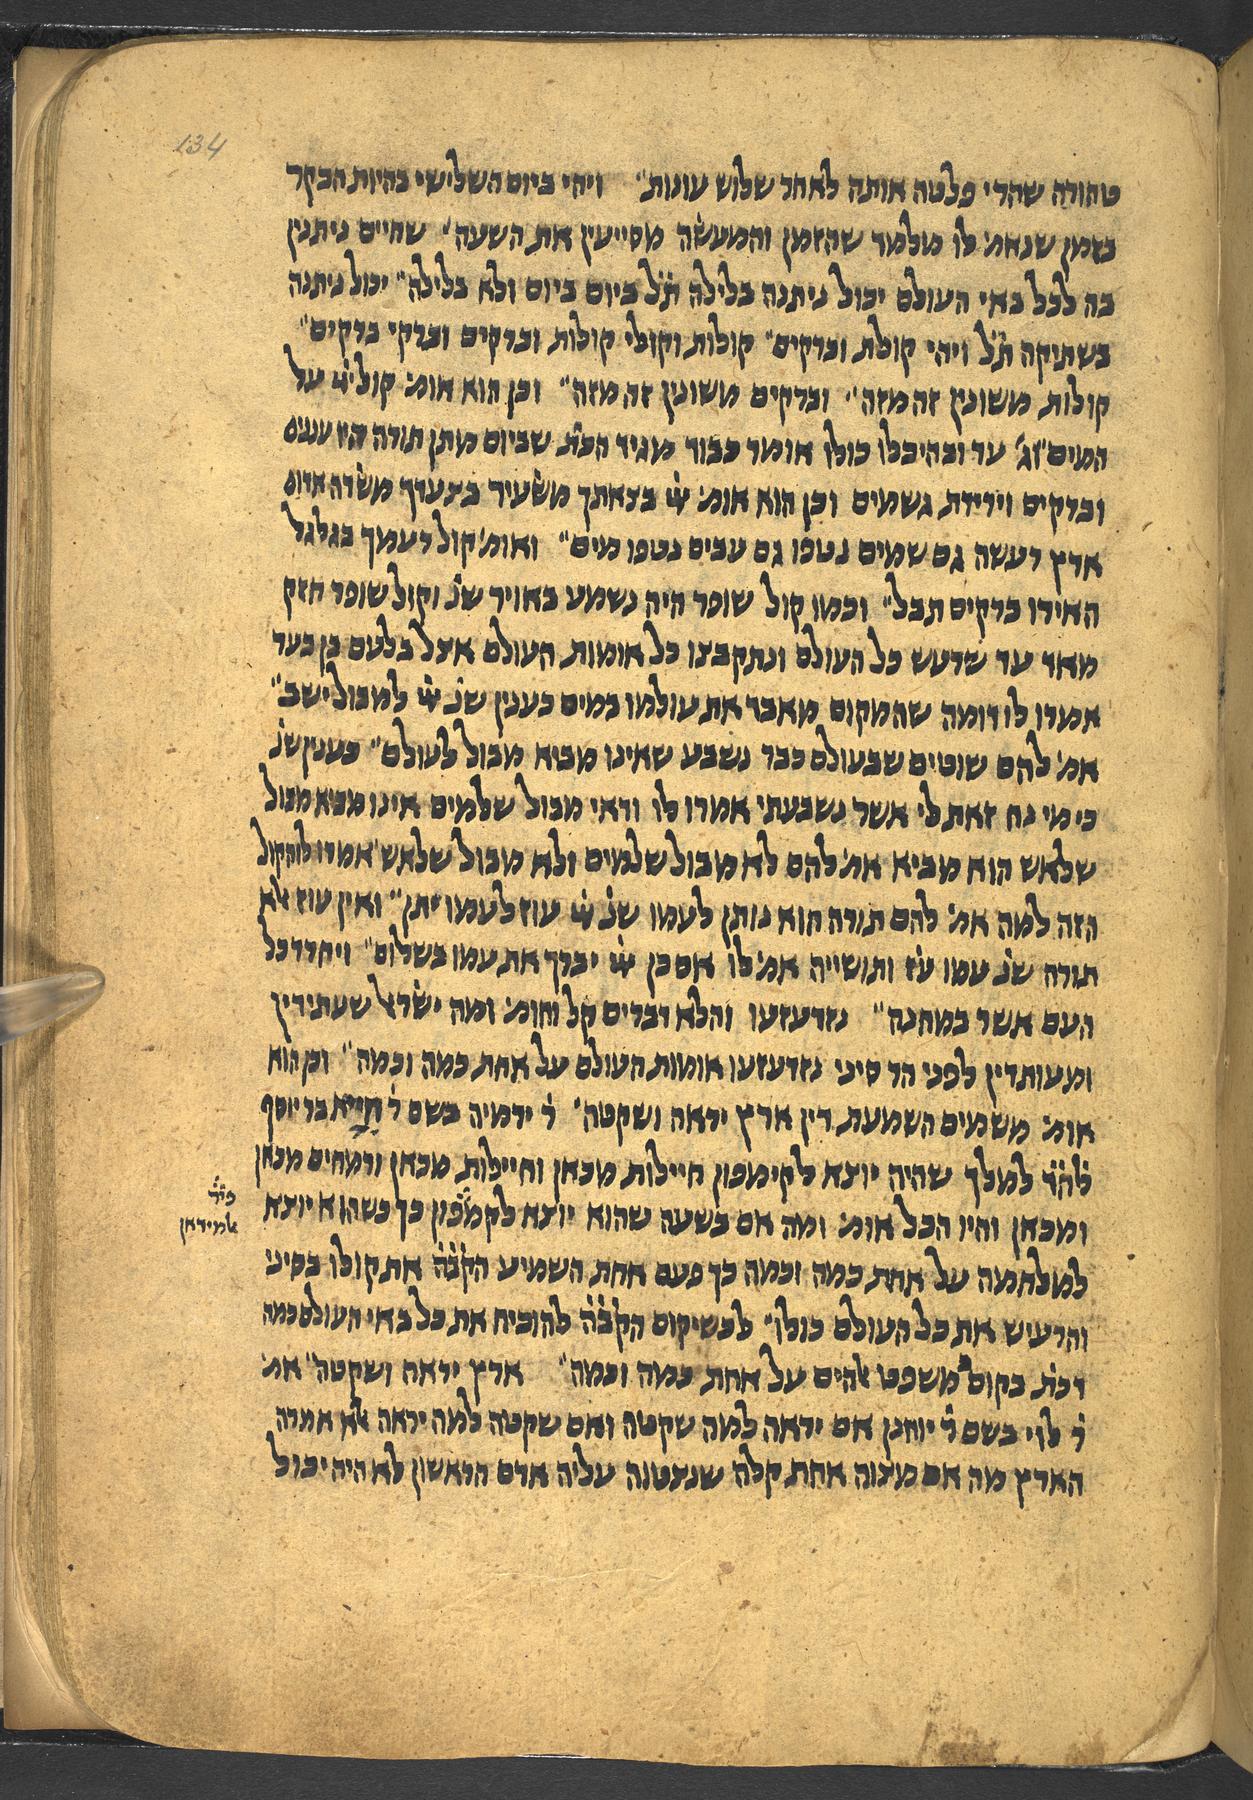 134
טהורה שהרי פלטה אותה לאחר שלוש עונות״ ויהי ביום השלישי בהיות הבקר
בזמן שנאמ׳ לו מלמד שהזמן והמעשה מסייעין את השעה״ שחיים ניתנין
בה לכל באי העולם יכול ניתנה בלילה ת״ל ביום ביום ולא בלילה״ יכול ניתנה
בשתיקה ת״ל ויהי קולת וברקים״ קולות וקולי קולות וברקים וברקי ברקים״
קולות משונין זה מזה״ וברקים משונין זה מזה״ וכן הוא אומ׳ קול ײ על
המים וג׳ עד ובהיכלו כולו אומר כבוד מגיד הכת׳ שביום מתן תורה היו עננים
וברקים וירידת גשמים וכן הוא אומ׳ ײ בצאתך משעיר בצעדך משדה אדום
ארץ רעשה גם שמים נטפו גם עבים נטפו מים״ ואומ׳ קול רעמך בגלגל
האירו ברקים תבל״ וכמו קול שופר היה נשמע באויר שנ׳ וקול שופר חזק
מאד עד שרעש כל העולם ונתקבצו כל אומות העולם אצל בלעם בן בעור
אמרו לו דומה שהמקום מאבד את עולמו במים כענין שנ׳ ײ למבול ישב״
אמ׳ להם שוטים שבעולם כבר נשבע שאינו מביא מבול לעולם״ כענין שנ׳
כי מי נח זאת לי אשר נשבעתי אמרו לו ודאי מבול שלמים אינו מביא מבול
שלאש הוא מביא אמ׳ להם לא מבול שלמים ולא מבול שלאש אמרו לו הקול
הזה למה אמ׳ להם תורה הוא נותן לעמו שנ׳ ײ עוז לעמו יתן״ ואין עוז אלא
תורה שנ׳ עמו עז ותושייה אמ׳ לו אם כן ײ יברך את עמו בשלום״ ויחרד כל
העם אשר במחנה״ נזדעזעו והלא דברים קל וחומ׳ ומה ישראל שעתידין
ומעותדין לפני הר סיני נזדעזעו אומות העולם על אחת כמה וכמה״ וכן הוא
אומ׳ משמים השמעת דין ארץ יראה ושקטה׳ ר׳ ירמיה בשם ר׳ חייא בר יוסף
למלך שהיה יוצא לקימפון חיילות מכאן וחיילות מכאן ורמחים מכאן
ומכאן והיו הכל אומ׳ ומה אם בשעה שהוא יוצא לקמפון כך כשהוא יוצא
למלחמה על אחת כמה וכמה כך פעם אחת השמיע הקב״ה את קולו בסיני
והרעיש את כל העולם כולו״ לכשיקום הקב״ה להוכיח את כל באי העולם כמה
דכת׳ בקום למשפט אלהים על אחת כמה וכמה״ ארץ יראה ושקטה״ אמ׳
ר׳ לוי בשם ר׳ יוחנן אם יראה למה שקטה ואם שקטה למה יראה אלא אמרה
הארץ מה אם מצוה אחת קלה שנצטוה עליה אדם הראשון לא היה יכול